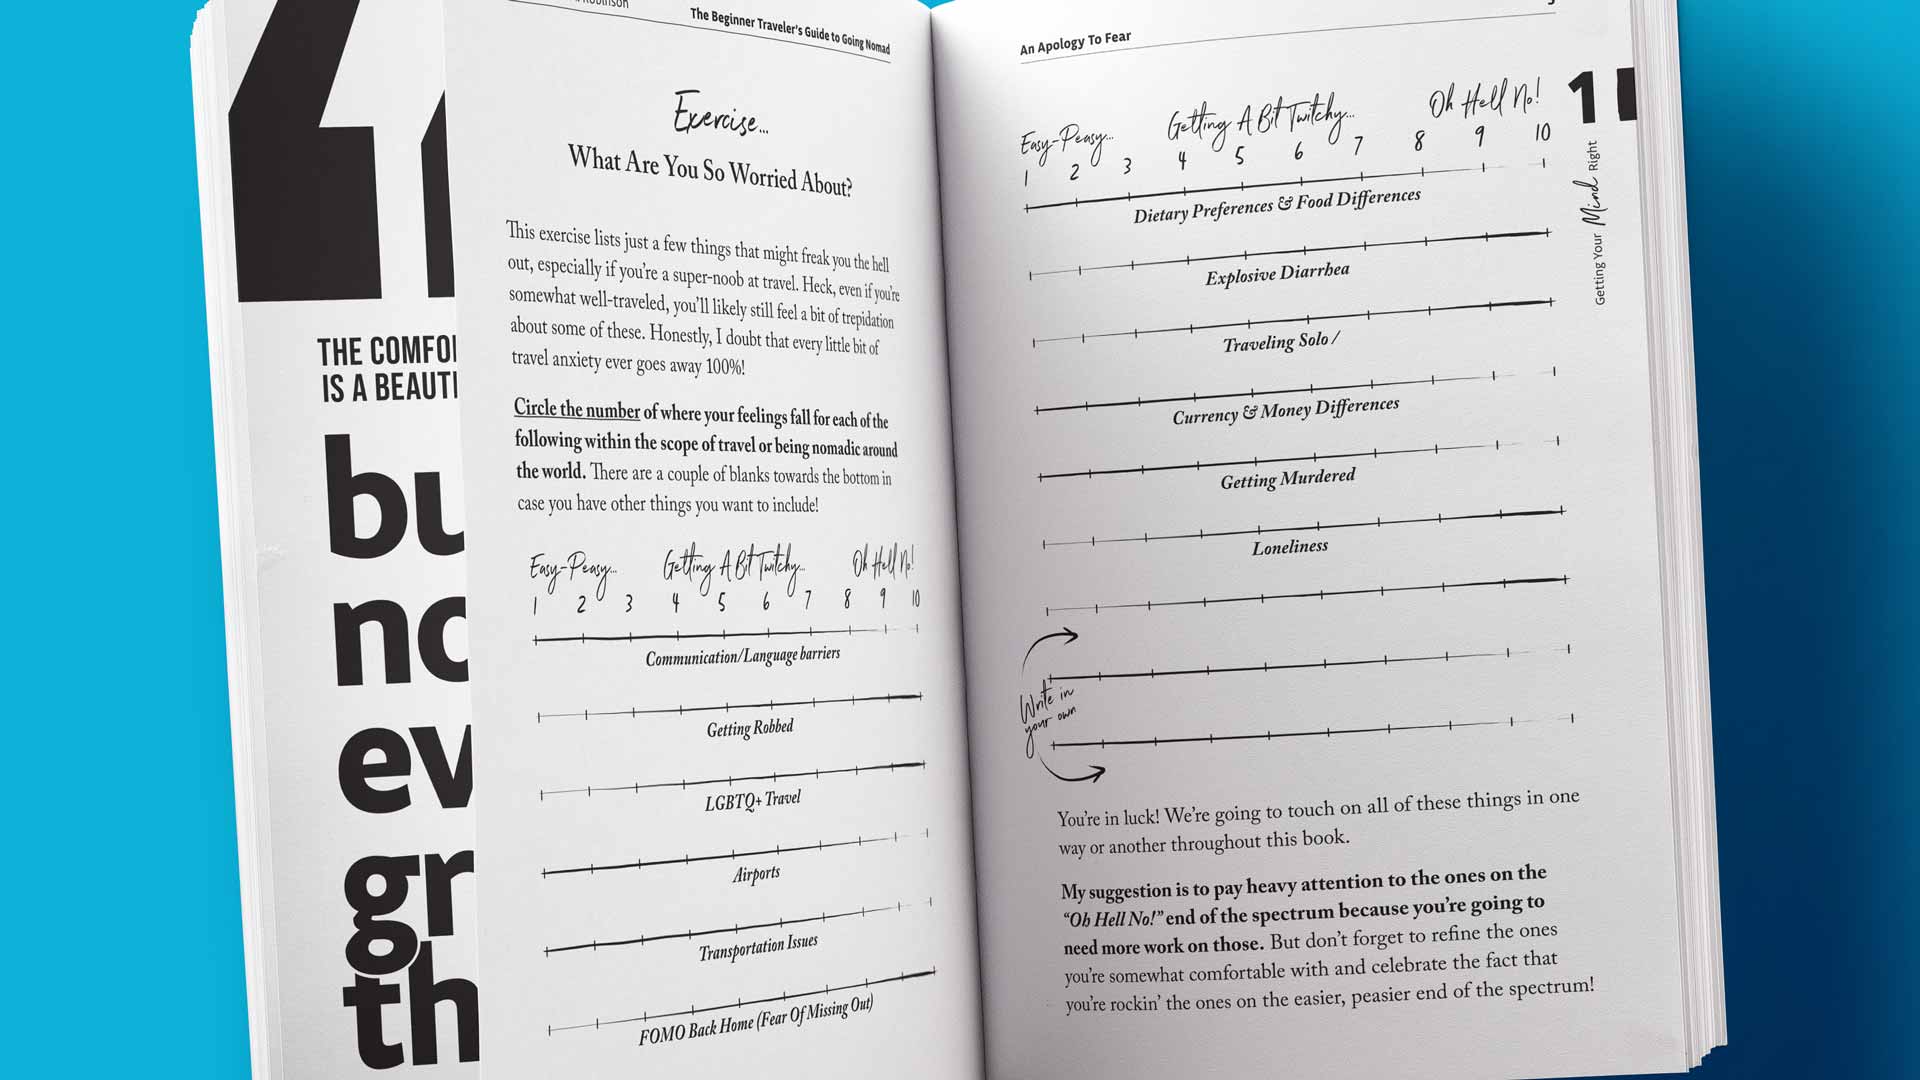 THE COMFO
IS A BEAUTI
bu
no
ev
gr
th
Robinson
The Beginner Traveler's Guide to Going Nomad
Exercise...
What Are You So Worried About?
This exercise lists just a few things that might freak you the hell
out, especially if you're a super-noob at travel. Heck, even if you're
somewhat well-traveled, you'll likely still feel a bit of trepidation
about some of these. Honestly, I doubt that every little bit of
travel anxiety ever goes away 100%!
Circle the number of where your feelings fall for each of the
following within the scope of travel or being nomadic around
the world. There are a couple of blanks towards the bottom in
case you have other things you want to include!
Easy-Peasy... Getting A Bit Twitchy... Oh Hell No!
1 2 3 4 5 6 7 8 9 10
Communication/Language barriers
Getting Robbed
LGBTQ+ Travel
Airports
Transportation Issues
FOMO Back Home (Fear Of Missing Out)
An Apology To Fear
Easy-Peasy... Getting A Bit Twitchy... Oh Hell No!
1 2 3 4 5 6 7 8 9 10
Dietary Preferences & Food Differences
Explosive Diarrhea
Traveling Solo /
Currency & Money Differences
Getting Murdered
Loneliness
Write in
your own
You're in luck! We're going to touch on all of these things in one
way or another throughout this book.
My suggestion is to pay heavy attention to the ones on the
“Oh Hell No!” end of the spectrum because you're going to
need more work on those. But don't forget to refine the ones
you're somewhat comfortable with and celebrate the fact that
you're rockin' the ones on the easier, peasier end of the spectrum!
1
Getting Your Mind Right